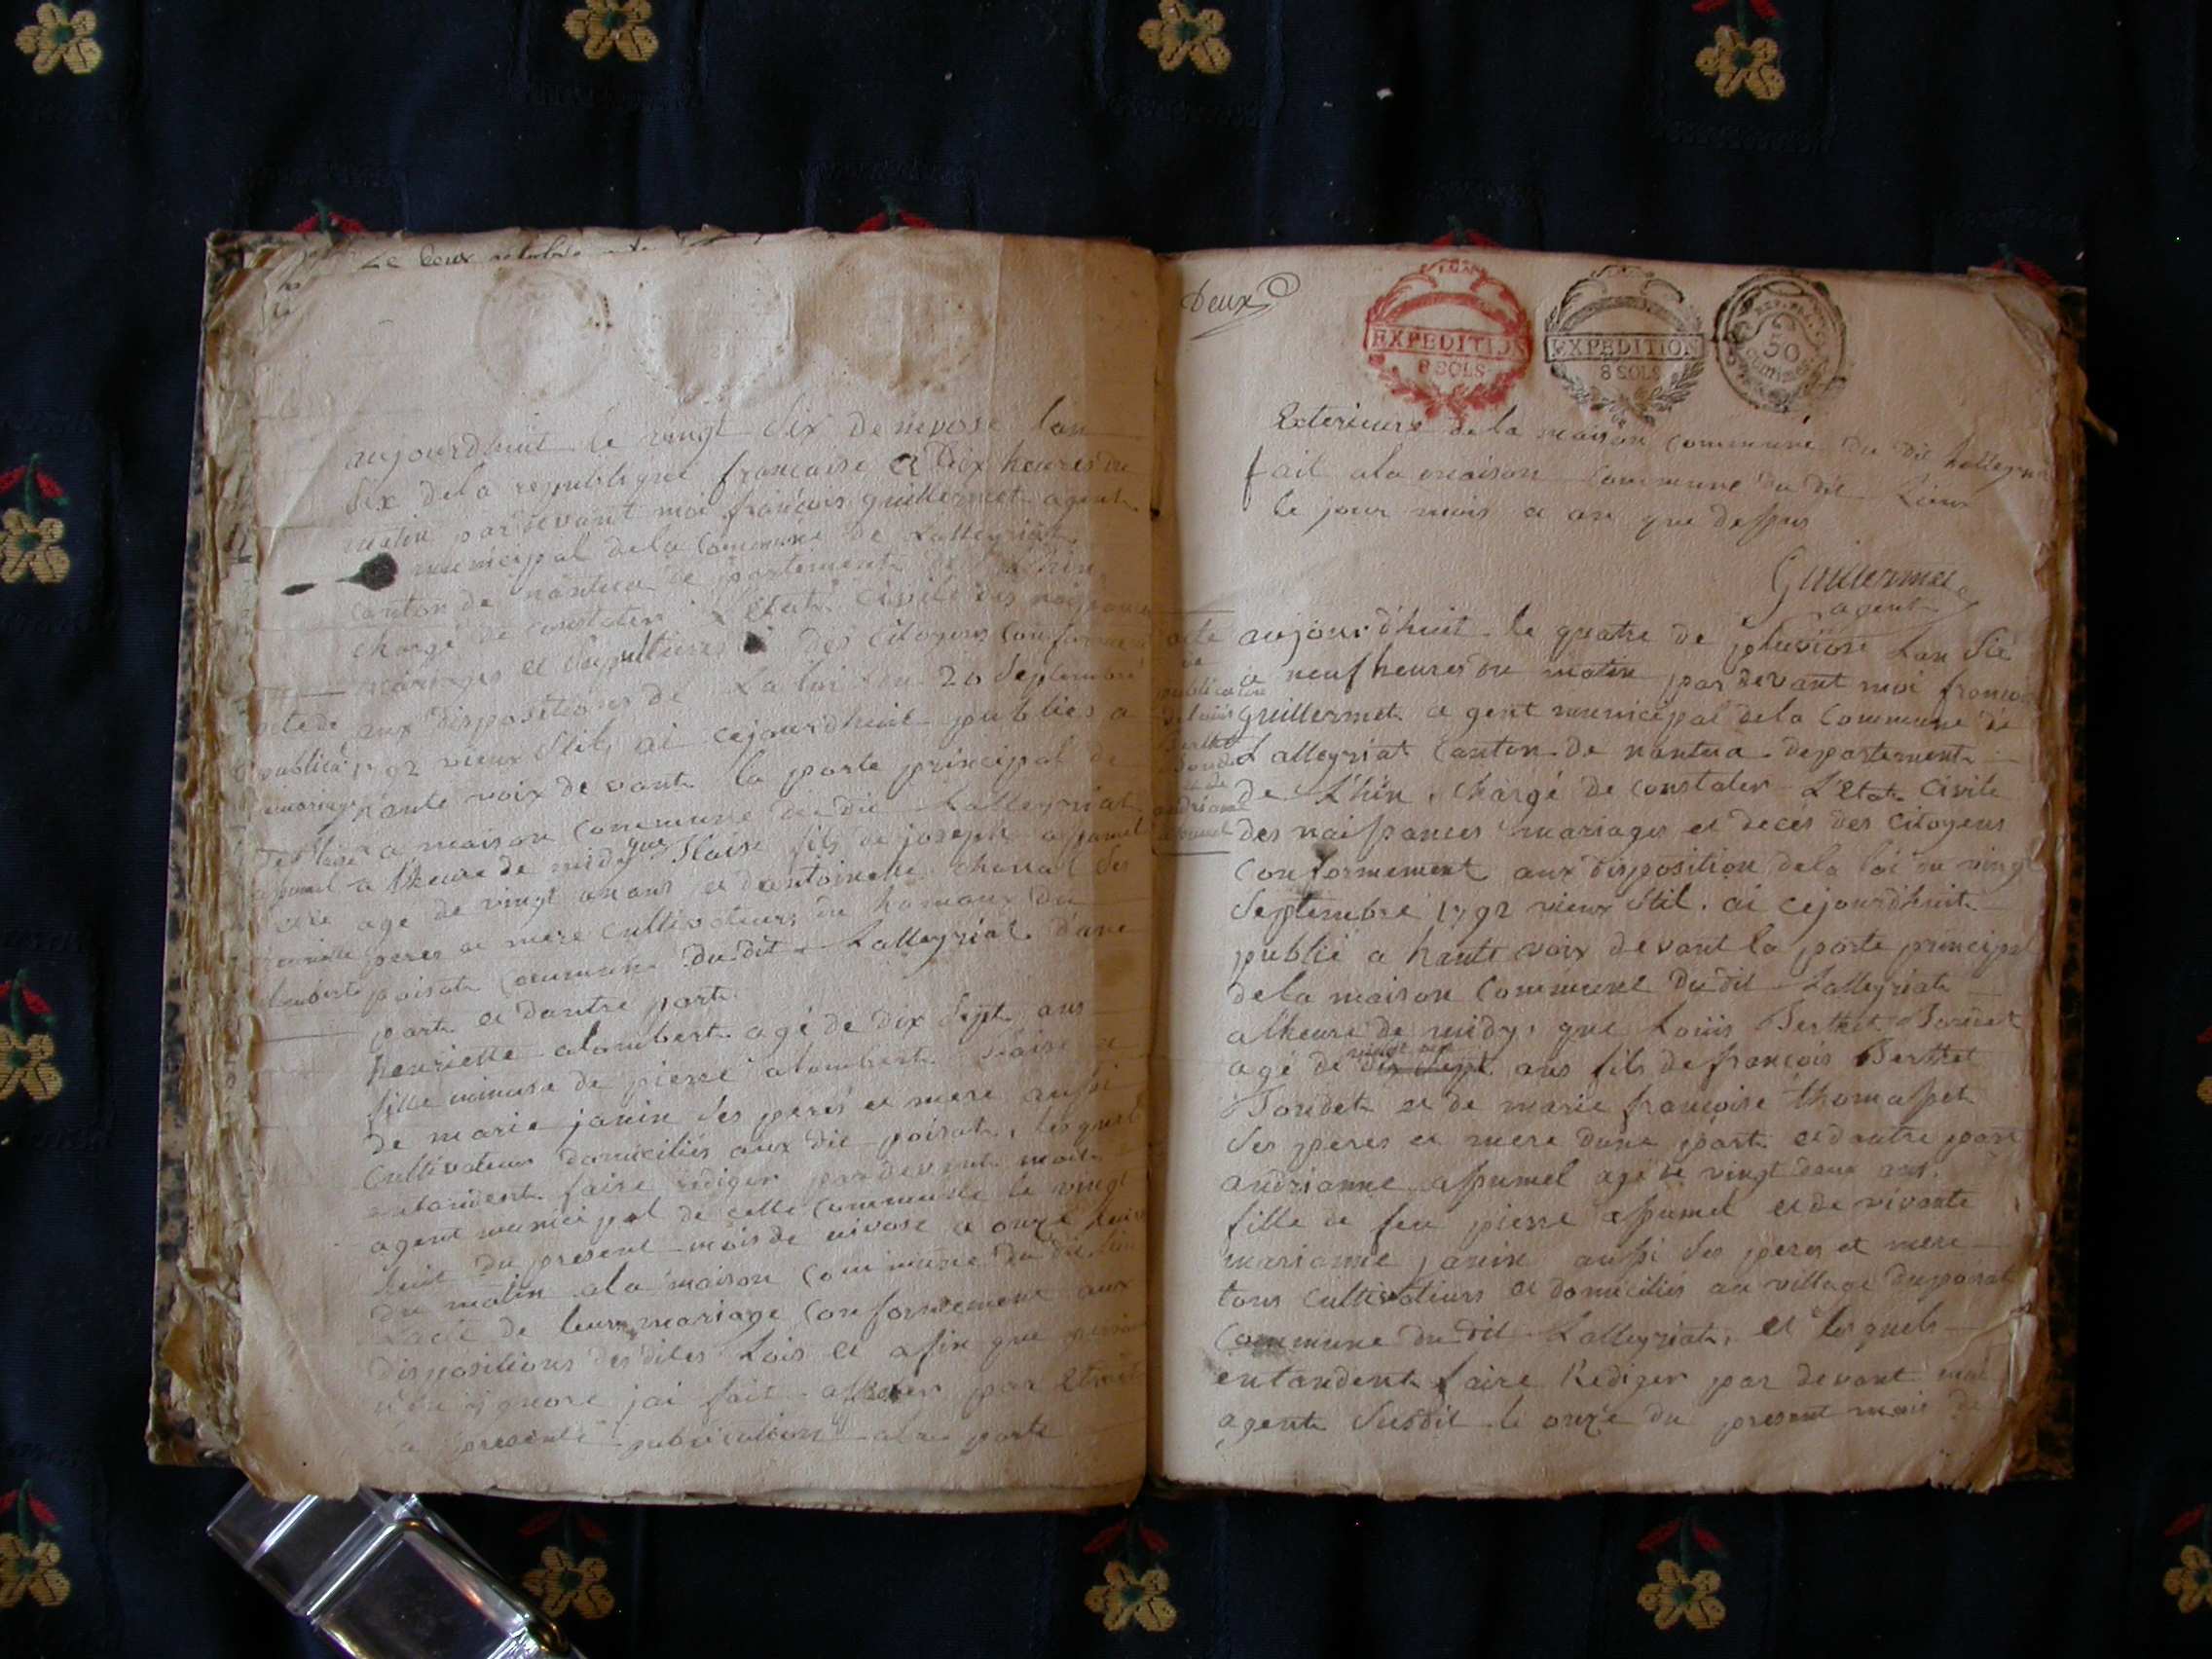 aujourdhuit le vingt six de nivose lan
six dela republique francaise a dix heures du
matin par devant moi françois guillermet agent
municipal dela Commune de Lalleyriat
canton de nantua departement de Lhin
chargé de constater Létat Civile des naissances
mariages et sepultures des citoyens conformement
aux dispositions de La loi du 20 septembre
1792 vieux stil, ai cejourdhuit publiés a
haute voix devant la porte principal de
la maison commune du dit Lalleyriat
a lheure de midy que Blaise fils de joseph apumel
age de vingt un ans et dantoinette chaval ses
peres et mere cultivateurs du hamaux du
poisat commune du dit Lalleyriat d'une
part et dautre part
henriette alombert agé de dix sept ans
fille mineure de pierre alombert et
de marie janin ses peres et mere aussi
Cultivateur domiciliés aux dit poisat, lesquels
entandent faire rediger pardevant moi
agent municipal de cette commune le vingt
huit du present mois de nivose a onze heure
du matin ala maison commune du dit lieu
Lacte de leur mariage conformement aux
dispositions desdites Lois et afin que
ignore jai fait afficher par
la presente publication a la porte
acte de
publica
mariage
De Blaise
apumel
henriette
alombert
Deux
EXPEDITION
8 SOLS
EXPEDITION
8 SOLS
REP. FRA.
50
Exterieure de la maison commune du dit Lalleyriat
fait ala maison commune du dit Lieux
le jour mois et an que dessus
Guillermet
agent
acte
de
publication
Berthet
andrianne
apumel
aujourdhuit le quatre de pluviose lan six
a neuf heures du matin par devant moi francois
guillermet agent municipal dela Commune de
Lalleyriat Canton de nantua departement
de Lhin, chargé de constater L'Etat Civile
des naissances mariages et decés des Citoyens
Conformement aux disposition dela loi du vingt
septembre 1792 vieux stil. ai cejourdhuit
publié a haute voix devant la porte principal
dela maison Commune Du dit Lalleyriat
alheure de midy, que Louis Berthet Joudet
agé de dix sept vingt ans fils de françois Berthet
Joudet et de marie françoise thomasset
ses peres et mere dune part et dautre part
andrianne apumel agé de vingt deux ans.
fille de feu pierre apumel et de vivante
marianne janin aussi ses peres et mere
tous cultivateurs et domiciliés au village dupoisat
Commune du dit Lalleyriat, et lesquels
entandent faire Rediger par devant moi
agent susdit le onze du present mois de